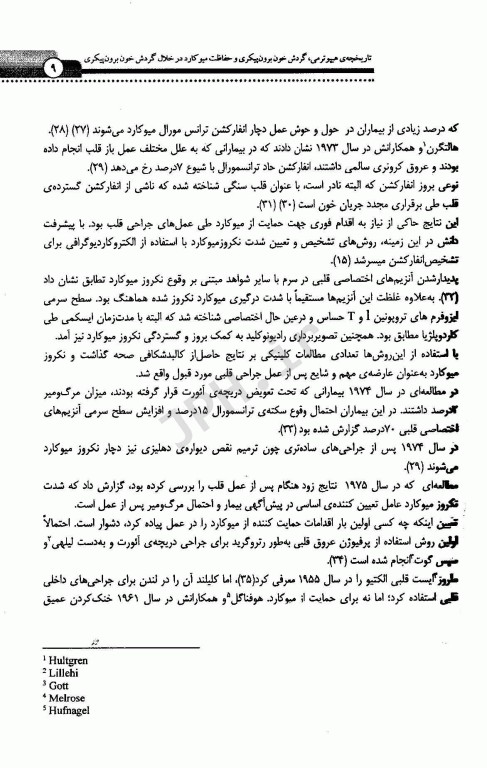 تاریخچه‌ی هیپوترمی، گردش خون برون‌پیکری و حفاظت میوکارد در خلال گردش خون برون‌پیکری
۹
که درصد زیادی از بیماران در حول و حوش عمل دچار انفارکشن ترانس مورال میوکارد می‌شوند (۲۷) (۲۸).
هالتگرن¹ و همکارانش در سال ۱۹۷۳ نشان دادند که در بیمارانی که به علل مختلف عمل باز قلب انجام داده
بودند و عروق کرونری سالمی داشتند، انفارکشن حاد ترانسمورالی با شیوع ۷درصد رخ می‌دهد (۲۹).
نوعی بروز انفارکشن که البته نادر است، با عنوان قلب سنگی شناخته شده که ناشی از انفارکشن گسترده‌ی
قلب طی برقراری مجدد جریان خون است (۳۰) (۳۱).
این نتایج حاکی از نیاز به اقدام فوری جهت حمایت از میوکارد طی عمل‌های جراحی قلب بود. با پیشرفت
دانش در این زمینه، روش‌های تشخیص و تعیین شدت نکروزمیوکارد با استفاده از الکتروکاردیوگرافی برای
تشخیص‌انفارکشن میسرشد (۱۵).
پدیدارشدن آنزیم‌های اختصاصی قلبی در سرم با سایر شواهد مبتنی بر وقوع نکروز میوکارد تطابق نشان داد
(۳۲). به‌علاوه غلظت این آنزیم‌ها مستقیماً با شدت درگیری میوکارد نکروز شده هماهنگ بود. سطح سرمی
ایزوفرم های تروپونین I و T حساس و درعین حال اختصاصی شناخته شد که البته با مدت‌زمان ایسکمی طی
کاردوپلژیا مطابق بود. همچنین تصویربرداری رادیونوکلید به کمک بروز و گستردگی نکروز میوکارد نیز آمد.
با استفاده از این‌روش‌ها تعدادی مطالعات کلینیکی بر نتایج حاصل‌از کالبدشکافی صحه گذاشت و نکروز
میوکارد به‌عنوان عارضه‌ی مهم و شایع پس از عمل جراحی قلبی مورد قبول واقع شد.
در مطالعه‌ای در سال ۱۹۷۴ بیمارانی که تحت تعویض دریچه‌ی آئورت قرار گرفته بودند، میزان مرگ‌ومیر
درصد داشتند. در این بیماران احتمال وقوع سکته‌ی ترانسمورال ۱۵درصد و افزایش سطح سرمی آنزیم‌های
اختصاصی قلبی ۷۰درصد گزارش شده بود (۳۳).
در سال ۱۹۷۴ پس از جراحی‌های ساده‌تری چون ترمیم نقص دیواره‌ی دهلیزی نیز دچار نکروز میوکارد
می‌شوند (۲۹).
مطالعه‌ای که در سال ۱۹۷۵ نتایج زود هنگام پس از عمل قلب را بررسی کرده بود، گزارش داد که شدت
نکروز میوکارد عامل تعیین کننده‌ی اساسی در پیش‌آگهی بیمار و احتمال مرگ‌ومیر پس از عمل است.
تعیین اینکه چه کسی اولین بار اقدامات حمایت کننده از میوکارد را در عمل پیاده کرد، دشوار است. احتمالاً
اولین روش استفاده از پرفیوژن عروق قلبی به‌طور رتروگرید برای جراحی دریچه‌ی آئورت و به‌دست لیلهی² و
سپس گوت³ انجام شده است (۳۴).
ملروز⁴ ایست قلبی الکتیو را در سال ۱۹۵۵ معرفی کرد(۳۵)، اما کلیلند آن را در لندن برای جراحی‌های داخلی
قلبی استفاده کرد؛ اما نه برای حمایت از میوکارد. هوفناگل⁵ و همکارانش در سال ۱۹۶۱ خنک‌کردن عمیق
¹ Hultgren
² Lillehi
³ Gott
⁴ Melrose
⁵ Hufnagel